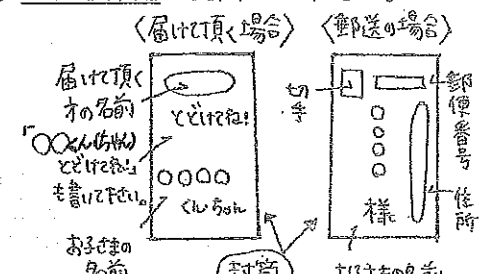 〈届けて頂く場合〉
届けて頂く
方の名前
「○○くん(ちゃん)
とどけてね!」
も書いて下さい。
とどけてね!
○○○○
くん・ちゃん
お子さまの
名前
封筒
〈郵送の場合〉
切手
郵便番号
○○○○
様
住所
お子さまの名前